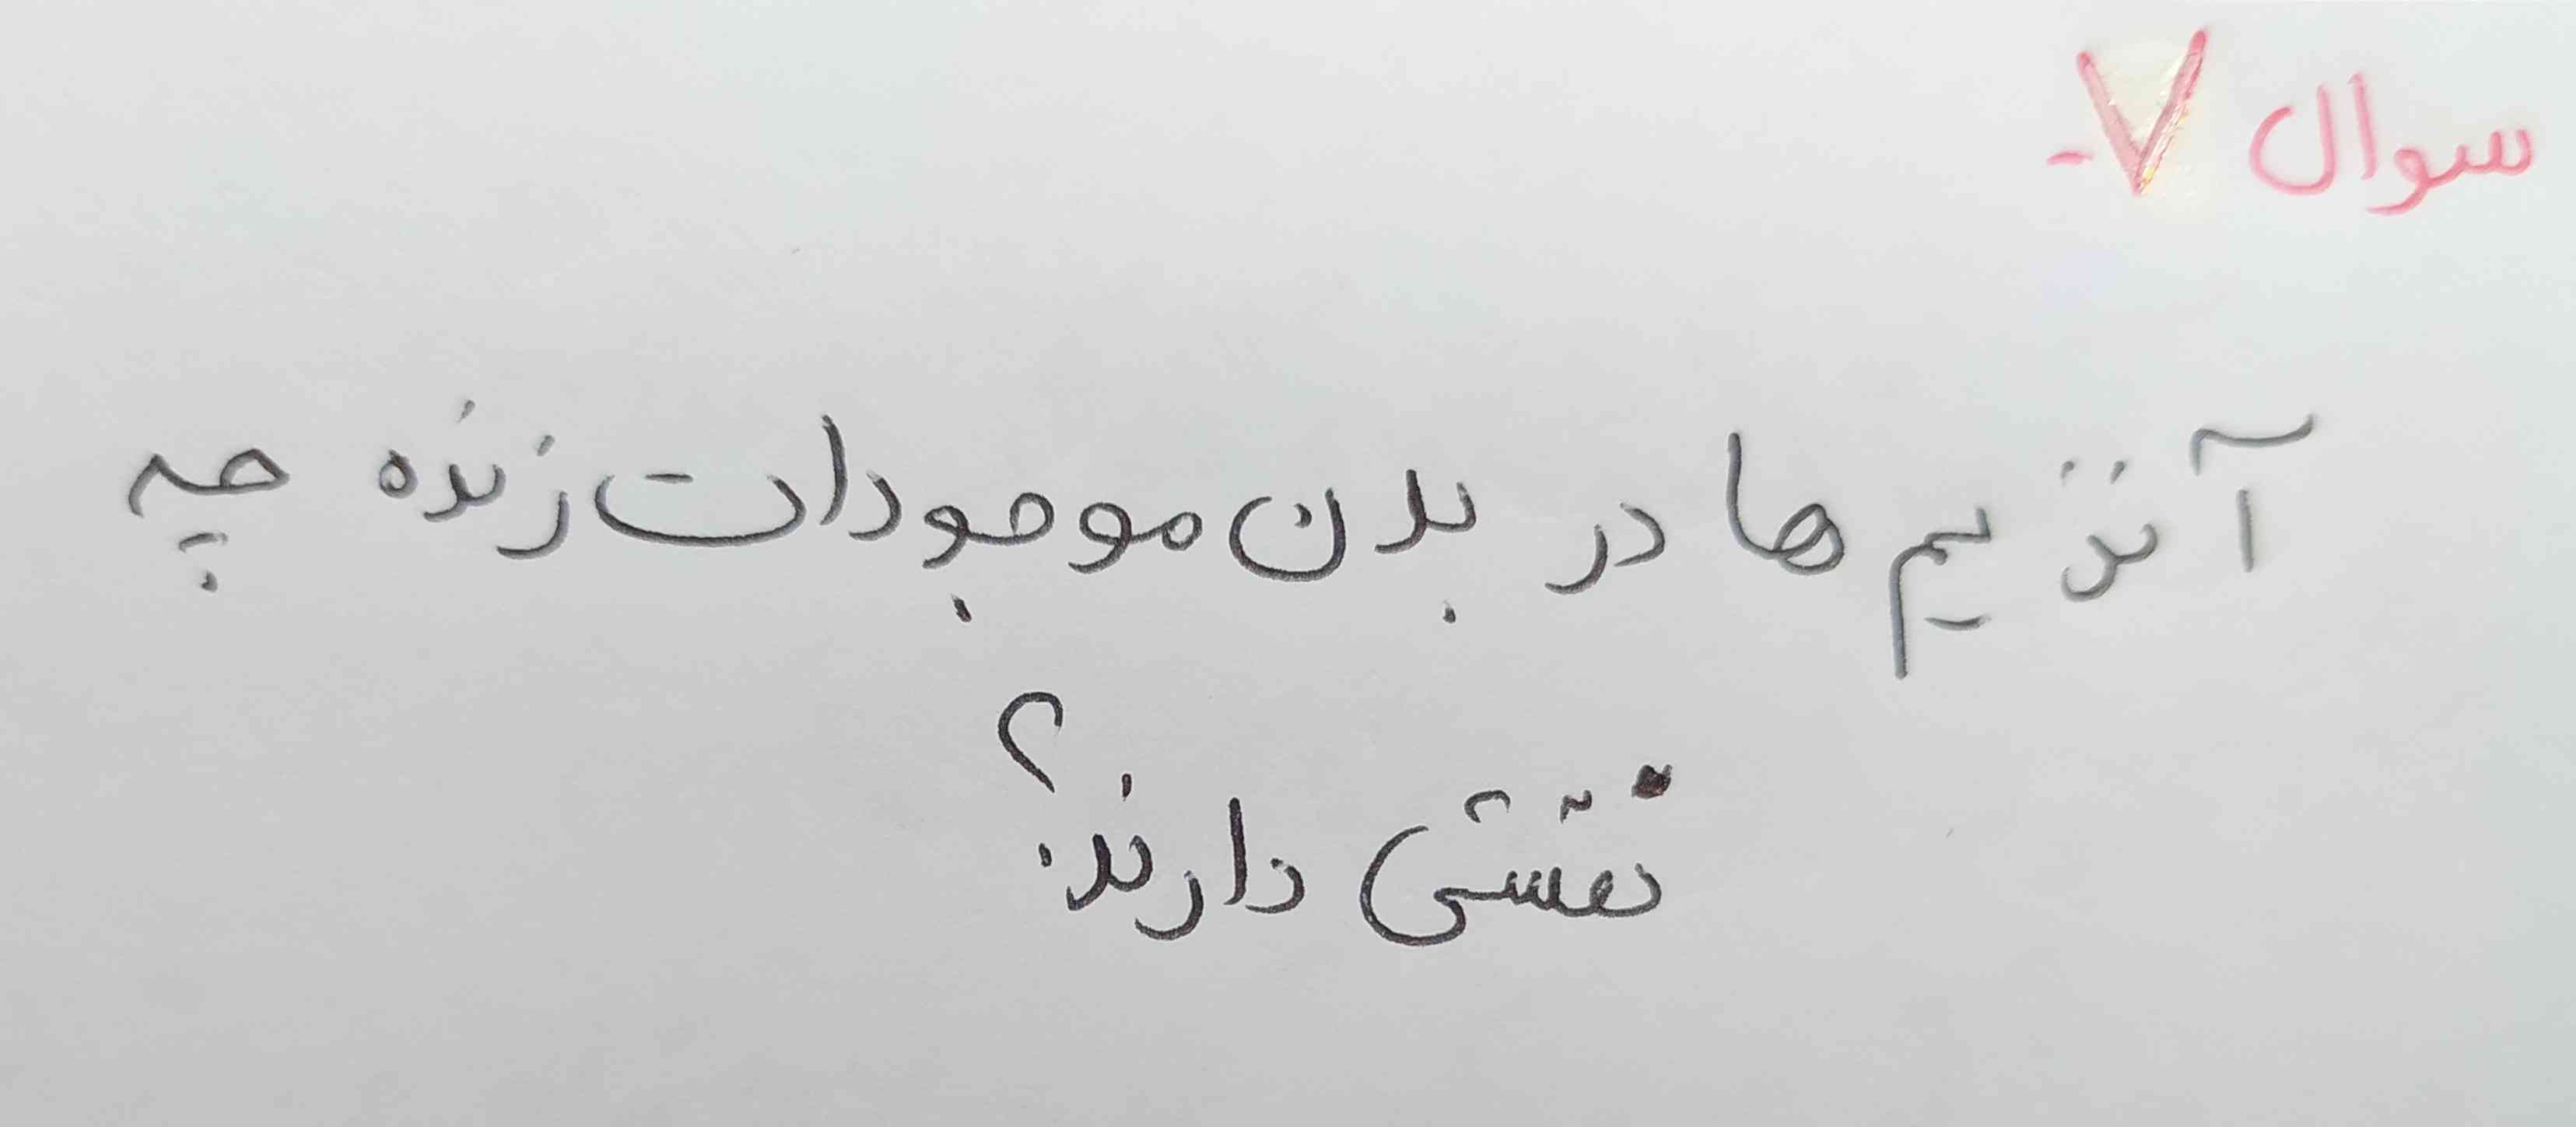 سوال ۷-
آنزیم ها در بدن موجودات زنده چه
نقشی دارند؟